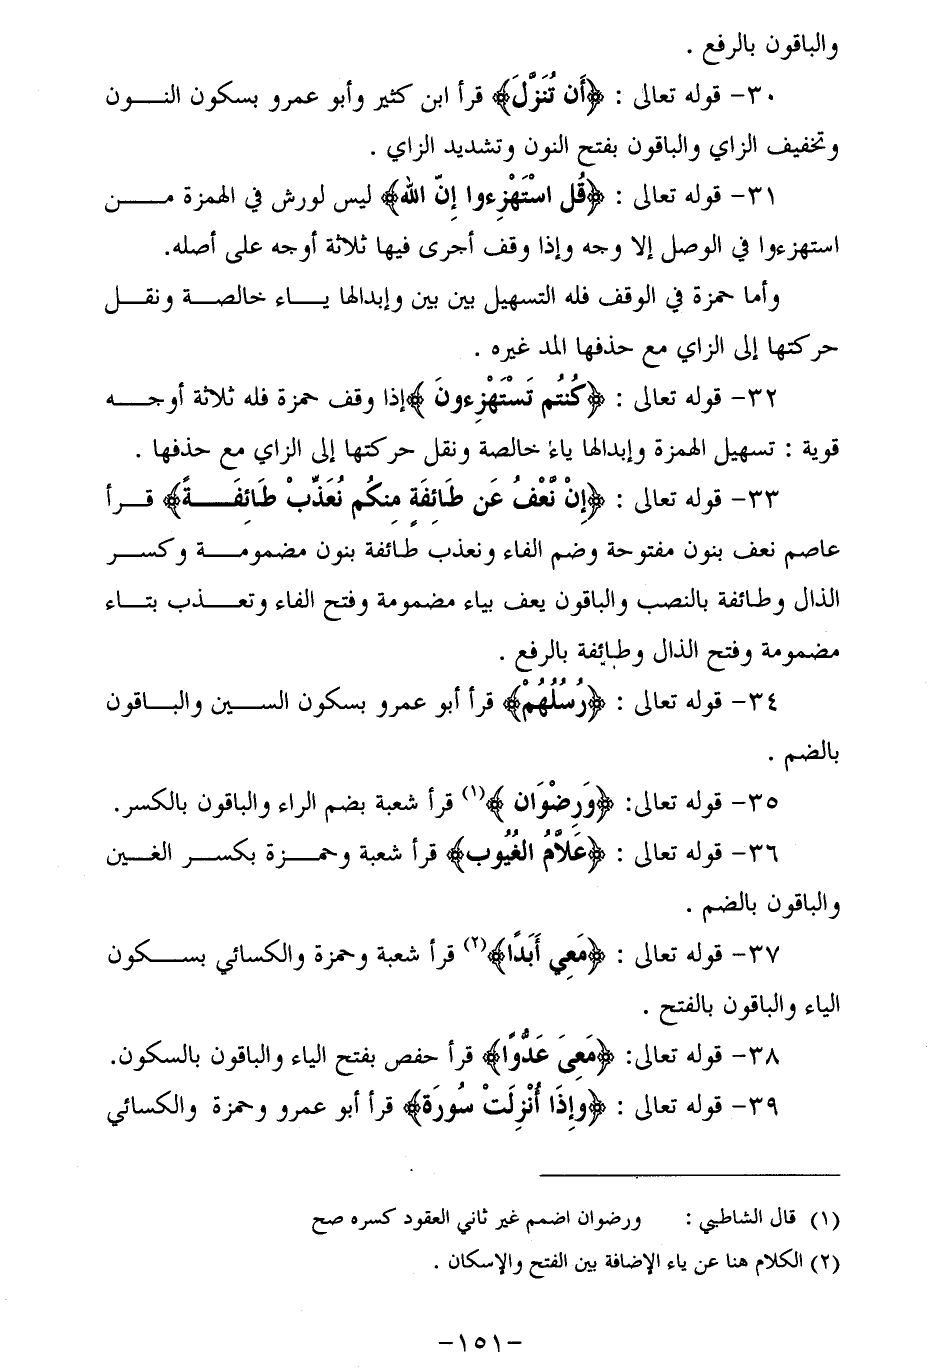 والباقون بالرفع .
٣٠- قوله تعالى : ﴿أَن تُنَزَّلَ﴾ قرأ ابن كثير وأبو عمرو بسكون النـــون
وتخفيف الزاي والباقون بفتح النون وتشديد الزاي .
٣١- قوله تعالى : ﴿قُل اسْتَهْزِءوا إِنّ الله﴾ ليس لورش في الهمزة مـــن
استهزءوا في الوصل إلا وجه وإذا وقف أجرى فيها ثلاثة أوجه على أصله.
وأما حمزة في الوقف فله التسهيل بين بين وإبدالها يـــاء خالصـة ونقـل
حركتها إلى الزاي مع حذفها المد غيره .
٣٢- قوله تعالى : ﴿كُنتُم تَسْتَهْزِءونَ ﴾إذا وقف حمزة فله ثلاثة أوجـــه
قوية : تسهيل الهمزة وإبدالها ياء خالصة ونقل حركتها إلى الزاي مع حذفها .
٣٣- قوله تعالى : ﴿إِنْ نَّعْفُ عَن طَائِفَةٍ مِنكُم نُعَذِّبْ طَائِفَـــةً﴾ قـرأ
عاصم نعف بنون مفتوحة وضم الفاء ونعذب طائفة بنون مضمومـــة وكسـر
الذال وطائفة بالنصب والباقون يعف بياء مضمومة وفتح الفاء وتعـــذب بتـاء
مضمومة وفتح الذال وطائفة بالرفع .
٣٤- قوله تعالى : ﴿رُسُلُهُمْ﴾ قرأ أبو عمرو بسكون الســـين والبـاقون
بالضم .
٣٥- قوله تعالى: ﴿وَرِضْوَان ﴾(١) قرأ شعبة بضم الراء والباقون بالكسر.
٣٦- قوله تعالى : ﴿عَلاَّمُ الغُيُوب﴾ قرأ شعبة وحمـزة بكســر الغـين
والباقون بالضم .
٣٧- قوله تعالى : ﴿مَعِي أَبَدًا﴾(٢) قرأ شعبة وحمزة والكسائي بســـكون
الياء والباقون بالفتح .
٣٨- قوله تعالى: ﴿مَعِىَ عَدُّوًا﴾ قرأ حفص بفتح الياء والباقون بالسكون.
٣٩- قوله تعالى : ﴿وإِذَا أُنْزِلَتْ سُورَة﴾ قرأ أبو عمرو وحمزة والكسائي
(١) قال الشاطبي : ورضوان اضمم غير ثاني العقود كسره صح
(٢) الكلام هنا عن ياء الإضافة بين الفتح والإسكان .
-١٥١-